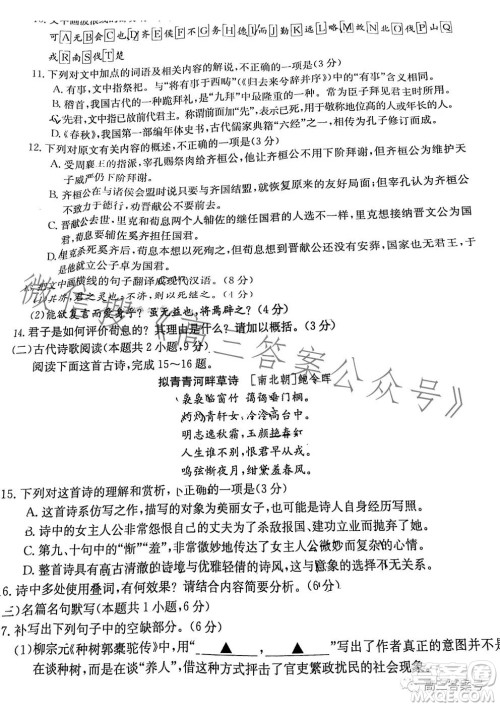 可A无B会C也D齐E侯F不G务H德I而J勤K远L略M故N北O伐P山Q
戎R南S伐T楚
11. 下列对文中加点的词语及相关内容的解说，不正确的一项是(3分)
A. 有事，文中指祭祀。与“将有事于西畴”(《归去来兮辞并序》)中的“有事”意思相同。
B. 稽首，我国古代的一种跪拜礼，是“九拜”中最隆重的一种。常为臣子拜见君主时所用。
C. 先君，文中指已故的君主。称谓前面加“先”，表示已死，用于敬称地位高的人或年长的人。
D.《春秋》，我国第一部编年体史书，古代儒家典籍“六经”之一，相传由孔子修订而成。
12. 下列对原文有关内容的概述，不正确的一项是(3分)
A. 受周襄王的指派，宰孔赐祭肉给齐桓公，他让齐桓公不用下阶拜谢，但齐桓公为维护天
子威严仍下阶拜谢。
B. 齐桓公在与诸侯会盟时说只要参与齐国结盟，就恢复原来的友好局面；但宰孔认为齐
桓公不致力于德行。
C. 晋献公去世，里克和荀息两个人辅佐的继任国君的人选不一样，里克想接纳晋文公为
国君，荀息想辅佐奚齐继任国君。
D. 里克杀死奚齐后，荀息本想以死殉之，但荀息考虑到晋献公还没有安葬，国家也无君王，于
是他就立公子卓为国君。
13. 把文中画横线的句子翻译成现代汉语。(8分)
(1)其济，君之灵也；不济，则以死继之。(4分)
(2)能欲复言而爱身乎？虽无益也，将焉辟之？(4分)
14. 君子是如何评价荀息的？其理由是什么？请加以概括。(3分)
(二)古代诗歌阅读(本题共2小题，9分)
阅读下面这首古诗，完成15～16题。
拟青青河畔草诗 [南北朝]鲍令晖
袅袅临窗竹 蔼蔼垂门桐。
灼灼青轩女，泠泠高台中。
明志逸秋霜，玉颜艳春红。
人生谁不别，恨君早从戎。
鸣弦惭夜月，绀黛羞春风。
15. 下列对这首诗的理解和赏析，不正确的一项是(3分)
A. 这首诗系仿写之作，描写的对象为美丽女子，也可以说是诗人自身的映照。
B. 诗中的女主人公非常怨恨自己的丈夫为了杀敌报国、建功立业而离开了她。
C. 第九、十句中的“惭”“羞”，非常微妙地传达出女主人公微妙而复杂的心情。
D. 这首诗既具有高古清澈的诗境与优雅轻倩的诗风，也给人以清丽悠远之感。
16. 诗中多处使用叠词，有何效果？请结合内容简要分析。(6分)
三)名篇名句默写(本题共1小题，6分)
7. 补写出下列句子中的空缺部分。(6分)
(1)柳宗元《种树郭橐驼传》中，用“▲，▲”写出了作者真正的意图并不是
在谈种树，而是在谈“养人”，借这种方式抨击了官吏繁政扰民的社会现象。
微信搜《高二答案公众号》
高二答案号